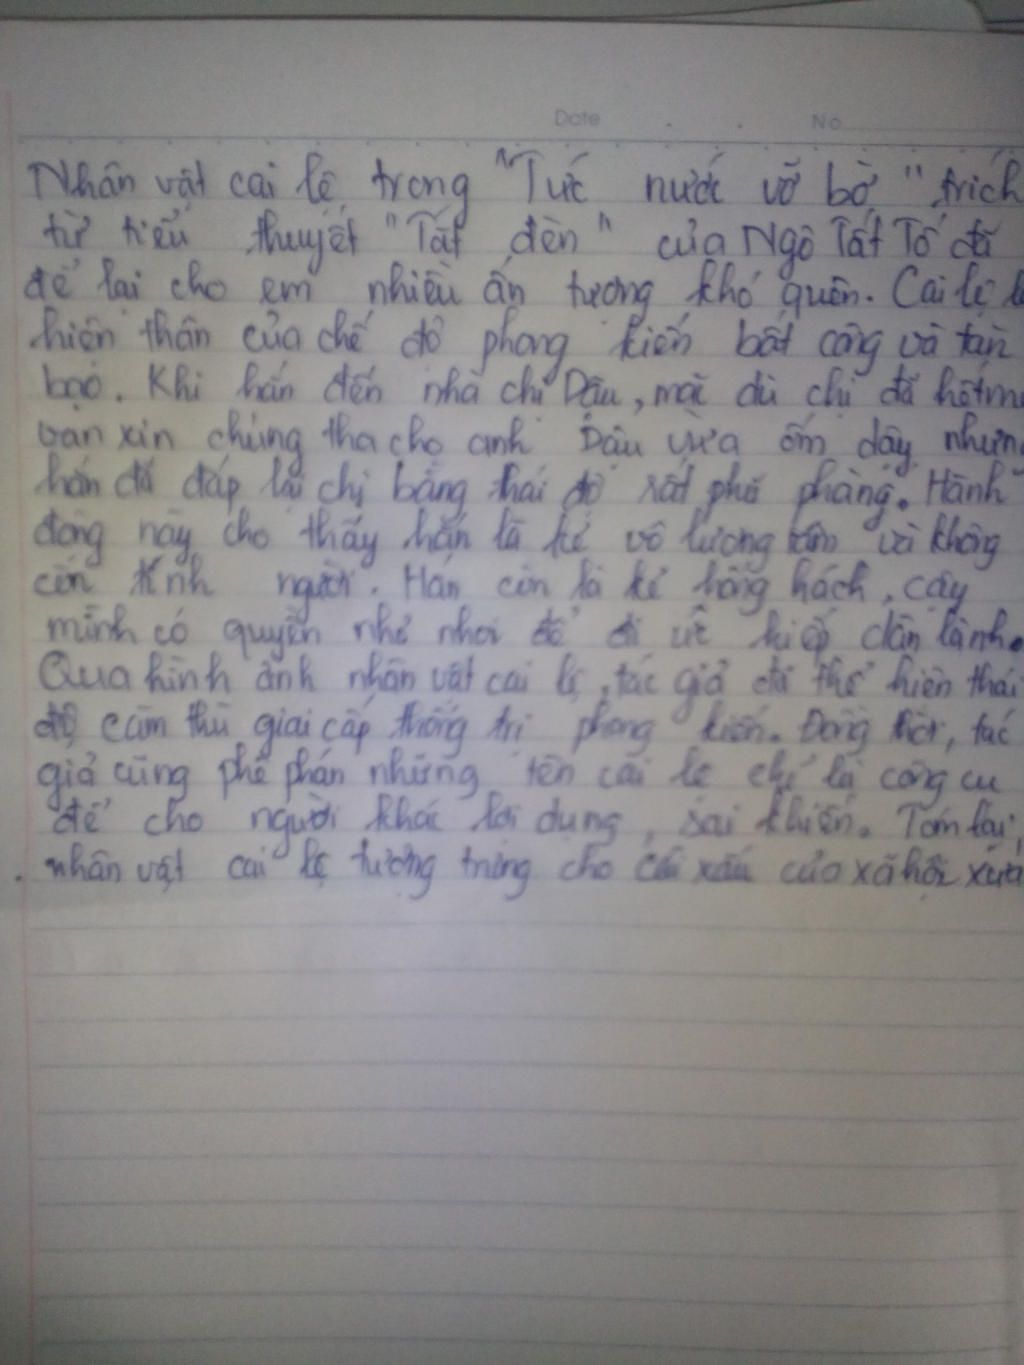 Date No
Nhân vật cai lệ trong "Tức nước vỡ bờ" trích
từ tiểu thuyết "Tắt đèn" của Ngô Tất Tố đã
để lại cho em nhiều ấn tượng khó quên. Cai lệ
hiện thân của chế độ phong kiến bất công và tàn
bạo. Khi hắn đến nhà chị Dậu, mặc dù chị đã hết
van xin chúng tha cho anh Dậu vừa ốm dậy
hắn đã đáp lại chị bằng thái độ rất phũ phàng. Hành
động này cho thấy hắn là kẻ vô lương tâm và không
còn tính người. Hắn còn là kẻ hống hách, cậy
mình có quyền nhỏ nhoi để đi ức hiếp dân lành.
Qua hình ảnh nhân vật cai lệ, tác giả đã thể hiện thái
độ căm thù giai cấp thống trị phong kiến. Đồng thời, tác
giả cũng phê phán những tên cai lệ chỉ là công cụ
để cho người khác lợi dụng, sai khiến. Tóm lại,
nhân vật cai lệ tượng trưng cho cái xấu của xã hội xưa